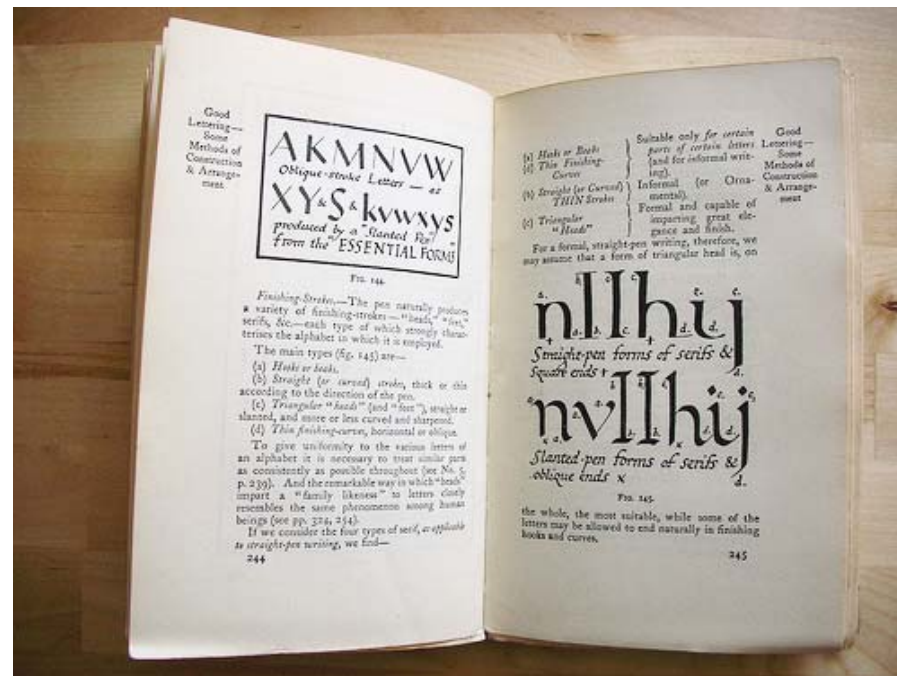 Good
Lettering—
Some
Methods of
Construction
& Arrange-
ment
AKMNVW
Oblique-stroke Letters — as
XY&S&kvwxys
produced by a "Slanted Pen"
from the "ESSENTIAL FORMS"
FIG. 144.
Finishing-Strokes.—The pen naturally produces
a variety of finishing-strokes—"heads," "feet,"
serifs, &c.—each type of which strongly charac-
terises the alphabet in which it is employed.
The main types (fig. 145) are—
(a) Hooks or beaks.
(b) Straight (or curved) strokes, thick or thin
according to the direction of the pen.
(c) Triangular "heads" (and "feet"), straight or
slanted, and more or less curved and sharpened.
(d) Thin finishing-curves, horizontal or oblique.
To give uniformity to the various letters of
an alphabet it is necessary to treat similar parts
as consistently as possible throughout (see No. 5,
p. 239). And the remarkable way in which "heads"
impart a "family likeness" to letters closely
resembles the same phenomenon among human
beings (see pp. 324, 254).
If we consider the four types of serif, as applicable
to straight-pen writing, we find—
244
Good
Lettering—
Some
Methods of
Construction
& Arrange-
ment
(a) Hooks or Beaks
(d) Thin Finishing-
Curves
Suitable only for certain
parts of certain letters
(and for informal writ-
ing).
(b) Straight (or Curved)
THIN Strokes
Informal (or Orna-
mental).
(c) Triangular
"Heads"
Formal and capable of
imparting great ele-
gance and finish.
For a formal, straight-pen writing, therefore, we
may assume that a form of triangular head is, on
a. b. c. e. c.
nllhij
a. b. c. d. d. d.
Straight-pen forms of serifs &
Square ends +
nvllhij
Slanted-pen forms of serifs &
oblique ends x
d.
FIG. 145.
the whole, the most suitable, while some of the
letters may be allowed to end naturally in finishing
hooks and curves.
245